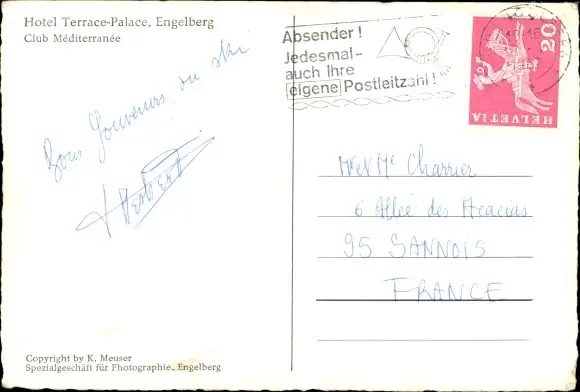 Hotel Terrace-Palace, Engelberg
Club Méditerranée
Absender !
Jedesmal-
auch Ihre
eigene Postleitzahl !
HELVETIA
20
Bons Souvenirs du ski
Mr et Me Charrier
6 Allée des Acacias
95 SANNOIS
FRANCE
Copyright by K. Meuser
Spezialgeschäft für Photographie, Engelberg